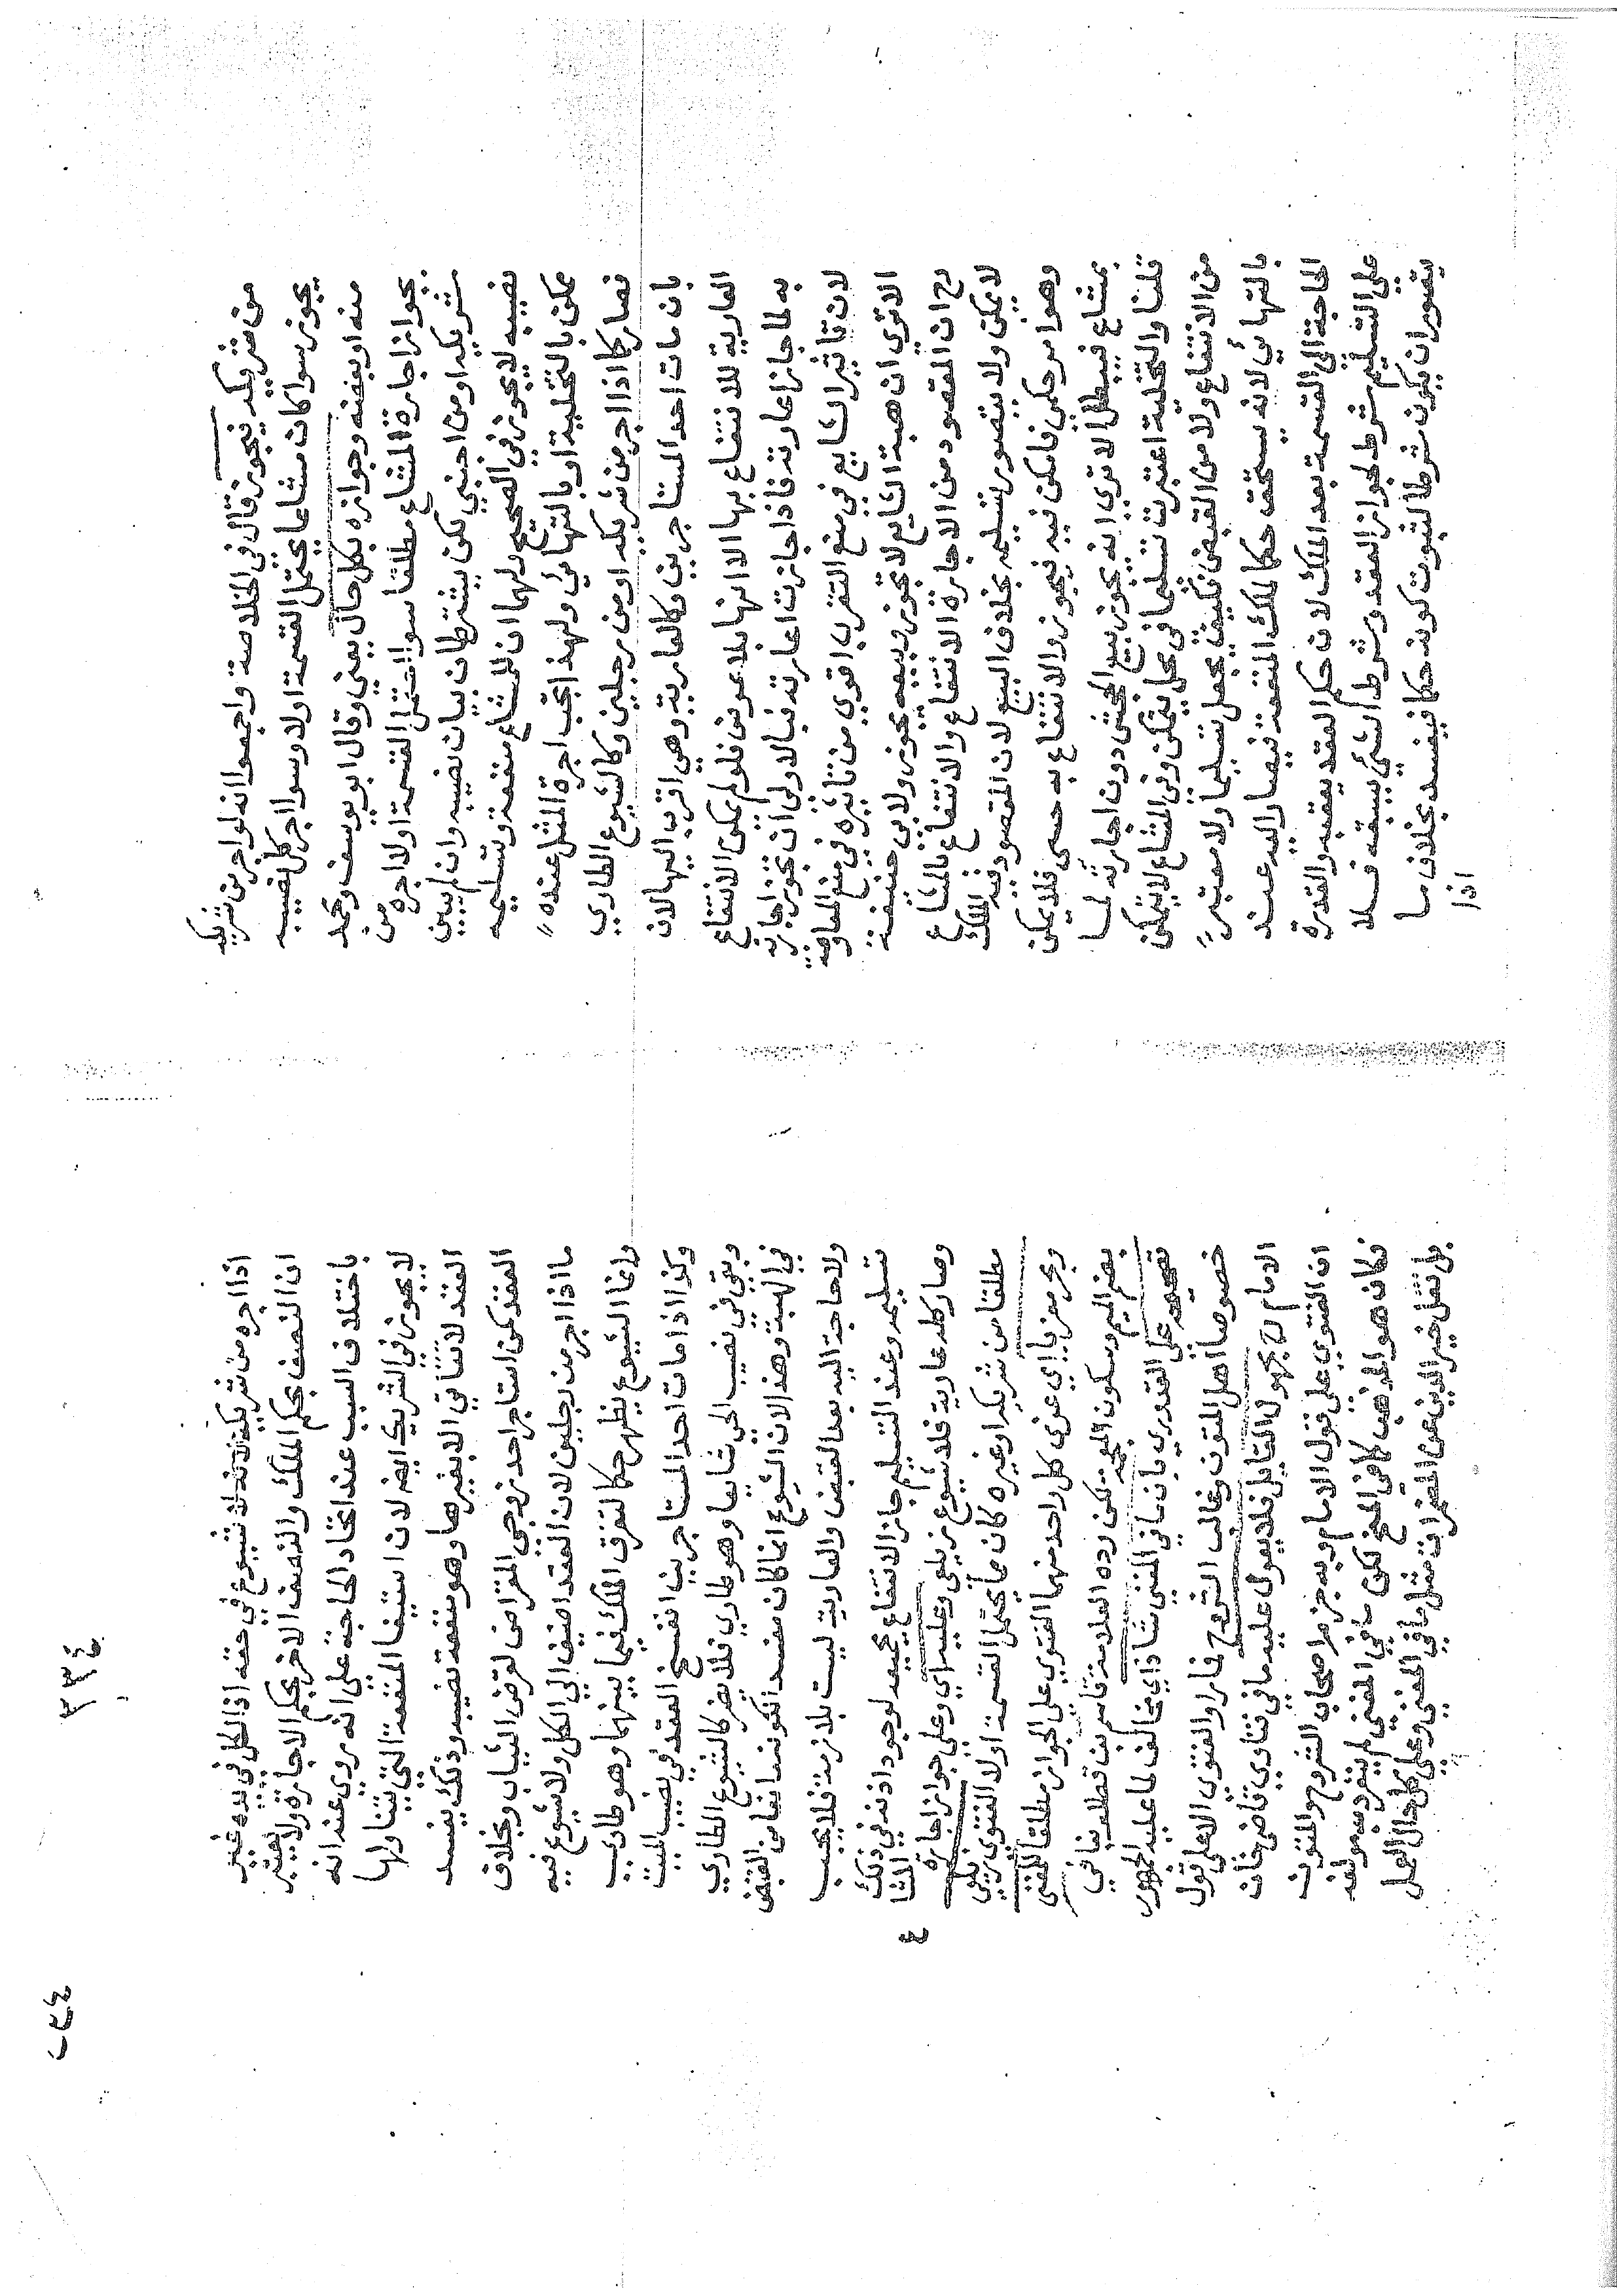 من شريكه فيجوز قال في الخلاصة واجمعوا انه لو اجر من شريكه
يجوز سوا كان مشاعا يحتمل القسمة اولا وسوا اجر كل نصيبه
منه او بعضه وجوازه بكل حال يعني وقال ابو يوسف ومحمد
بجواز اجارة المشاع مطلقا سوا احتمل القسمة اولا اجره من
شريكه او من اجنبي لكن يشترط بيان نصيبه وان لم يبين
نصيبه لا يجوز في الصحيح ولهما ان للمشاع منفعة وتسليمه
ممكن بالتخلية او بالتهائي ولهذا تجب اجرة المثل عنده
فصار كما اذا اجر من شريكه او من رجلين وكالشيوع الطاري
بان مات احد المستاجرين وكالعارية وهي اقرب اليها لان
العارية للانتفاع بها الا انها بلا عوض فلو لم يمكن الانتفاع
به لما جاز اعارته فاذا جازت اعارته فبالاولى ان تجوز اجارته
لان تاثير الشايع في منع التقرب اقوي من تاثيره في منع المعاوضة
الا تري ان هبة الشايع لا تجوز وبيعه يجوز ولابي حنيفة
رح ان المقصود من الاجارة الانتفاع والانتفاع بالمشاع
لا يمكن ولا يتصور تسليمه بخلاف البيع لان المقصود فيه الملك
وهو امر حكمي فامكن فيه فيجوز والانتفاع به حسي فلا يمكن
بمشاع فيبطل الا تري انه يجوز بيع الجحش دون اجارته لما
قلنا والتخلية اعتبرت تسليما في محل يتمكن وفي المشاع لا يتمكن
من الانتفاع ولا من القبض فكيف يجعل تسليما ولا معتبر
بالتهائي لانه يستحق حكما لملك المنفعة فيصار اليه عند
الحاجة الي القسمة بعد الملك لان حكم العقد يعقبه والقدرة
علي التسليم شرط لجواز العقد وشرط الشي يسبقه فلا
يتصور ان يكون شرطا لثبوت كونه حكما فيفسد بخلاف ما
اذا
٣٣٤
اذا اجره من شريكه لانه لا شيوع في حقه اذا الكل في يده غير
ان النصف بحكم الملك والنصف الاخر بحكم الاجارة ولا يعتبر
باختلاف السبب عند اتحاد الحاجة علي انه روي عنه انه
لا يجوز في الشريك ايضا لان استيفا المنفعة التي يتناولها
العقد لا تتأتي الا بغيرها وهو منفعة نصيبه وذلك يفسد
العقد كمن استاجر احد زوجي المقراض لقرض الثياب وبخلاف
ما اذا اجر من رجلين لان العقد اضيف الي الكل ولا شيوع فيه
وانما الشيوع يظهر حكما لتفرق الملك فيما بينهما وهو طاري
وكذا اذا مات احد المستاجرين انفسخ العقد في نصيب الميت
وبقي في نصيب الحي شايعا وهو طاري فلا يضر كالشيوع الطاري
في الهبة وهذا لان الشيوع انما كان مفسدا لكونه مانعا من القبض
ولا حاجة اليه بعد القبض والعارية ليست بلازمة فلا يجب
تسليمه وعند التسليم جاز الانتفاع بحميعه لوجود اذنه في ذلك
وصار كله عارية فلا شيوع زيلعي وعليه اي وعلي جواز اجارة المشا
ع
مطلقا من شريكه او غيره كان مما يحتمل القسمة اولا الفتوي زيلعي
وبحر معزيا اي عزي كل واحد منهما الفتوي علي الجواز مطلقا للمغني
بضم الميم وسكون المعجمة لكن رده العلامة قاسم بن قطلوبغا في
تصحيحه علي القدوري بان ما في المغني شاذ اي مخالف لما عليه الجمهور
خصوصا اهل المتون وغالب الشروح فما را والفتوي الا علي قول
الامام مجهول القايل فلا يعول عليه ما في فتاوي قاضي خان
ان الفتوي علي قول الامام وبه جزم اصحاب الشروح والمتون
فكان هو المذهب كما في المنح لكن ما في المغني لم يتفرد به مولفه
بل نقل خير الدين عن المضمرات مثل ما في المغني وعلي كل حال العمل